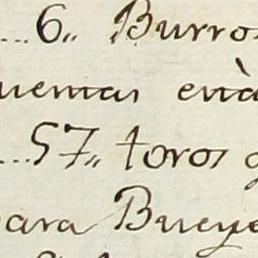 ....6,, Burros
quemas està
....57,, toros q
para Bueye